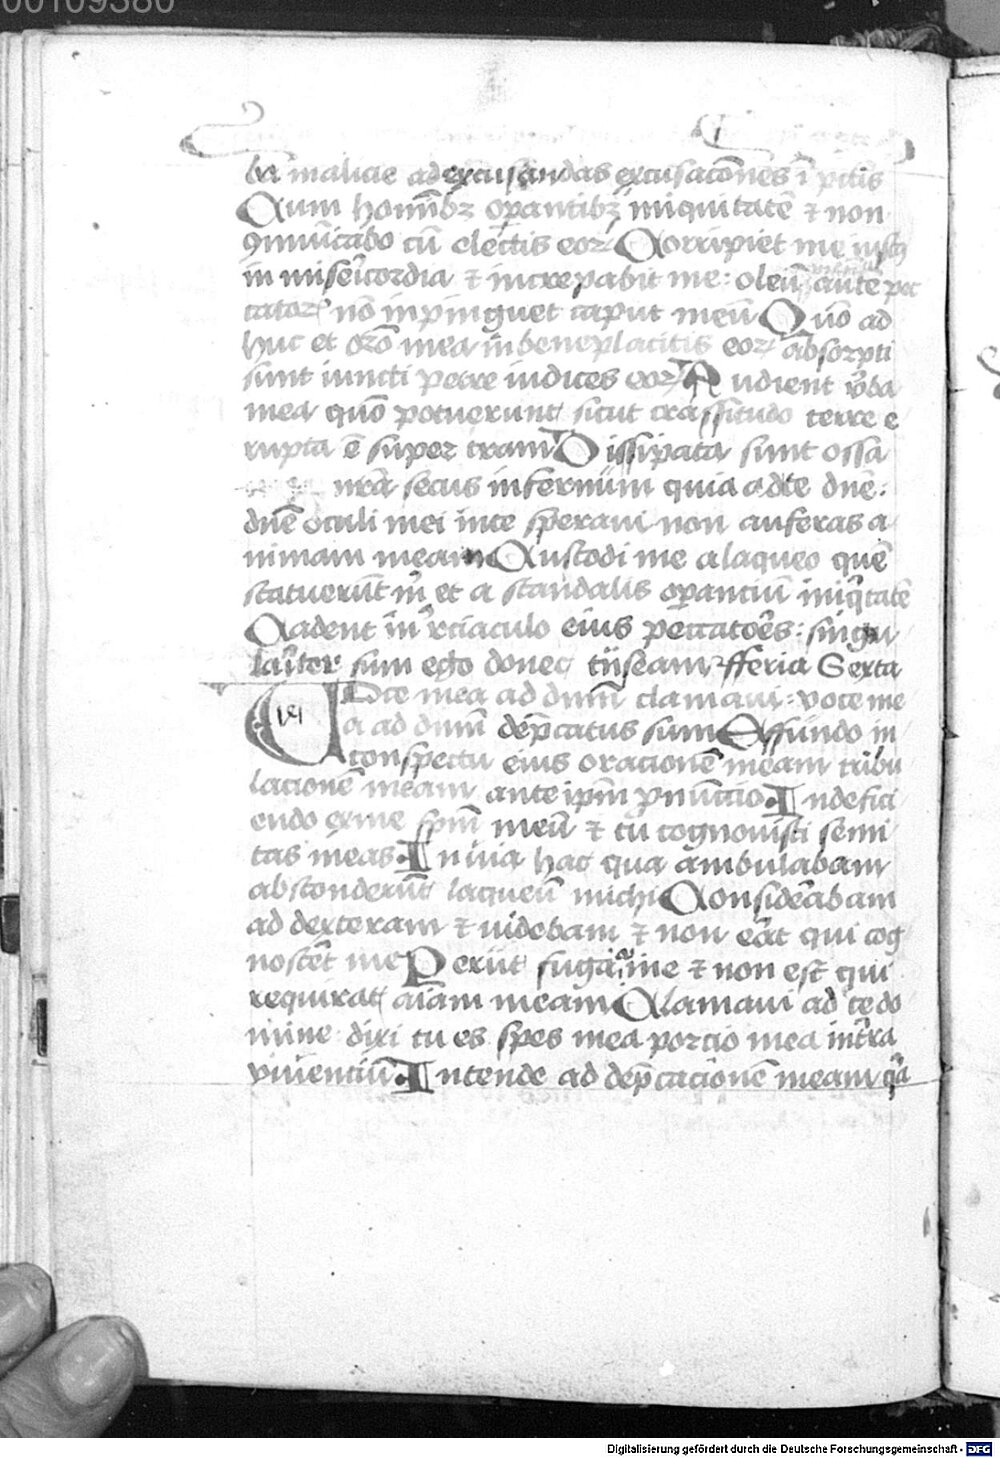 00109380
ba malicie ad excusandas excusacōnes ī pctīs
Cum homībꝫ oꝑantibꝫ iniquitatē ⁊ non
ꝯmunicabo cū electis eoꝝ Corripiet me iustꝰ
in misericordia ⁊ increpabit me : oleū aute pec
catoꝝ nō inpinguet caput meū Quō ad
huc et oro mea in beneplacitis eoꝝ absorpti
sunt iuncti petre iudices eoꝝ Audient vba
mea quō potuerunt sicut crassitudo terre e
rupta ē super tram Dissipata sunt ossa
nrā secus infernūm quia ad te dnē :
dnē oculi mei in te speravi non auferas a
nimam meam Custodi me a laqueo quē
statuerūt m̄ et a scandalis oꝑantiū iniqtatē
Cadent in rciaculo eius peccatoēs : singu
larīter sum ego donec tnseam fferia Sexta
Voce mea ad dnm̄ clamavi : voce me
a ad dnm̄ dep̄catus sum Effundo in
conspectu eius oracionē meam tribu
lacionē meam ante ipm̄ pnūctio In defici
endo ex me spm̄ meū ⁊ tu cognovisti semi
tas meas In via hac qua ambulabam
absconderūt laqueū michi Considerabam
ad dexteram ⁊ videbam ⁊ non erāt qui cog
nosceret me Periit fuga a me ⁊ non est qui
requirat aīam meam Clamavi ad te do
mine dixi tu es spes mea porcio mea in tra
viventiū Intende ad dep̄cacionē meam qa
Digitalisierung gefördert durch die Deutsche Forschungsgemeinschaft - DFG